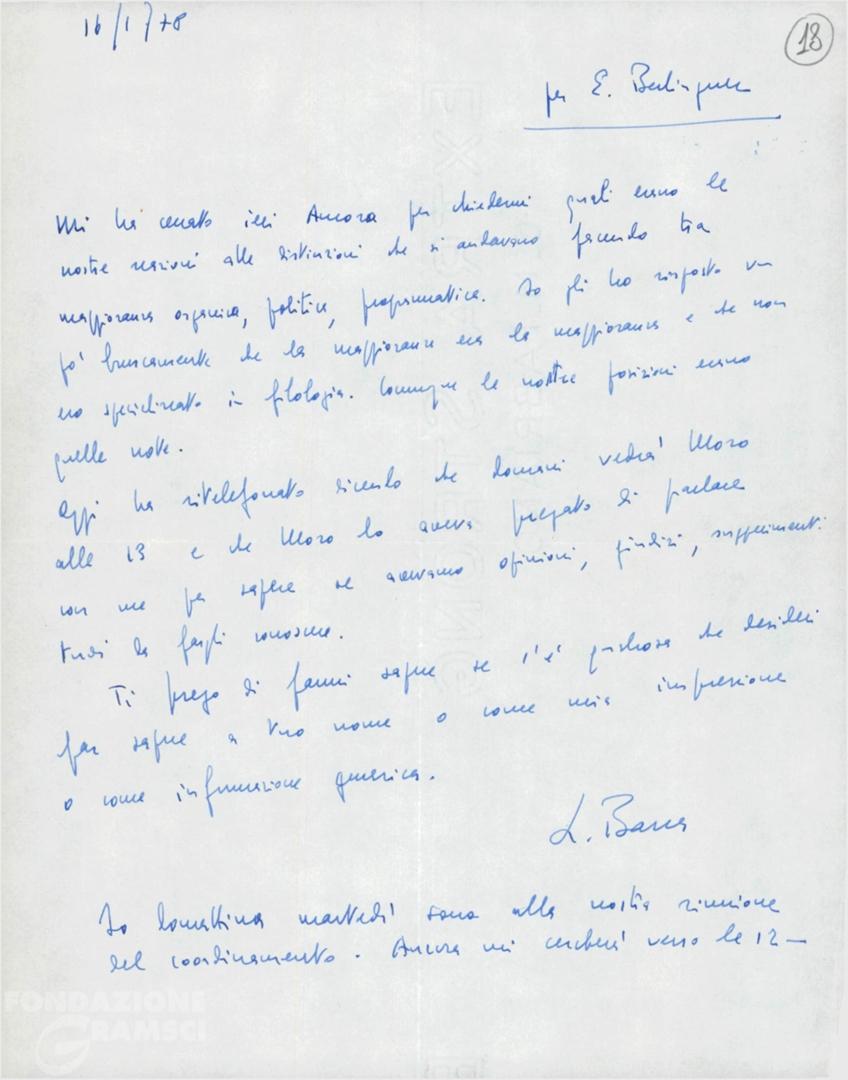 16/1/78
18
per E. Berlinguer
Mi ha cercato ieri Ancora per chiedermi quali erano le
nostre reazioni alle distinzioni che si andavano facendo tra
maggioranza organica, politica, programmatica. Io gli ho risposto un
po' bruscamente che la maggioranza era la maggioranza e che non
ero specializzato in filologia. Comunque le nostre posizioni erano
quelle note.
Oggi ha ritelefonato dicendo che domani vedrà Moro
alle 13 e che Moro lo aveva pregato di parlare
con me per sapere se avevamo opinioni, giudizi, suggerimenti
tuoi da fargli conoscere.
Ti prego di farmi sapere se c'è qualcosa che desideri
far sapere a tuo nome o come mia impressione
o come informazione generica.
L. Barca
Io domattina martedì sono alla nostra riunione
del coordinamento. Ancora mi cercherà verso le 12 —
FONDAZIONE
GRAMSCI